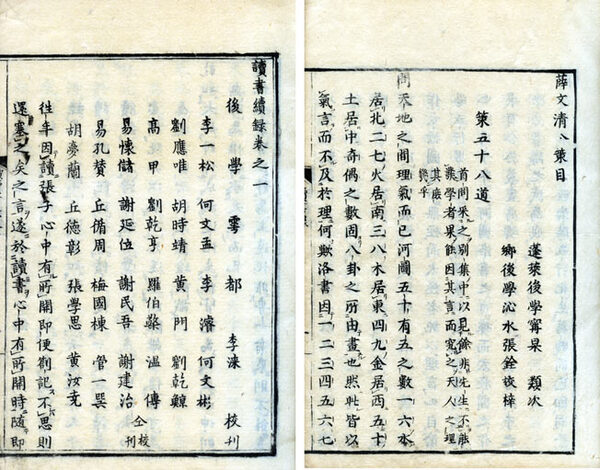 薛文清公策目
蓬萊後學甯杲 類次
鄉後學沁水張銓校梓
策五十八道
首問來之別集中以見餘非先生不能
策學者果能因其言而究之天人之理
其庶
幾乎
問天地之間理氣而已河圖五十有五之數一六水
居北二七火居南三八木居東四九金居西五十
土居中奇偶之數固八卦之所由畫也然此皆以
氣言而不及於理何歟洛書因一二三四五六七
讀書續錄卷之一
後學雩都 李淶 校刊
李一松 何文孟 李濬 何文彬
劉應唯 胡時靖 黃門 劉乾鯨
高甲 劉乾亨 羅伯 溫傳
易懷儲 謝廷位 謝民吾 謝建治
仝校刊
易孔贊 丘脩周 梅國棟 管一巽
胡夢蘭 丘德彰 張學思 黃汝堯
往年因讀張子心中有所開即便劄記不思則
還塞之矣之言遂於讀書心中有所開時隨即